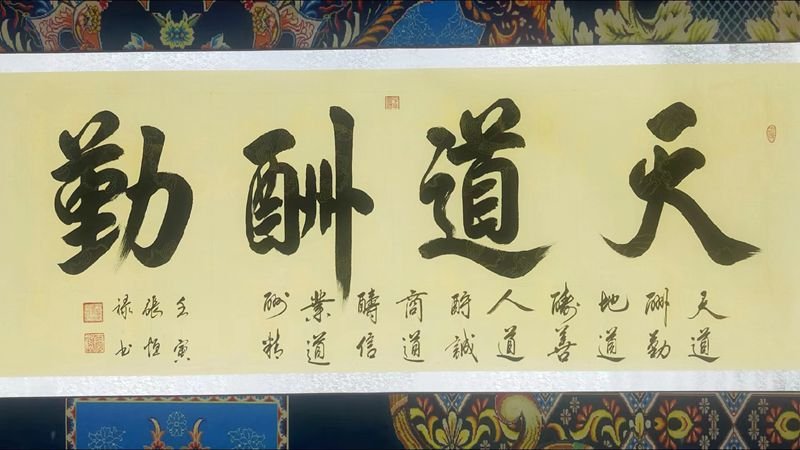 天道酬勤
天道
酬勤
地道
酬善
人道
酧誠
商道
醻信
業道
酬精
壬寅
張恒
禄书